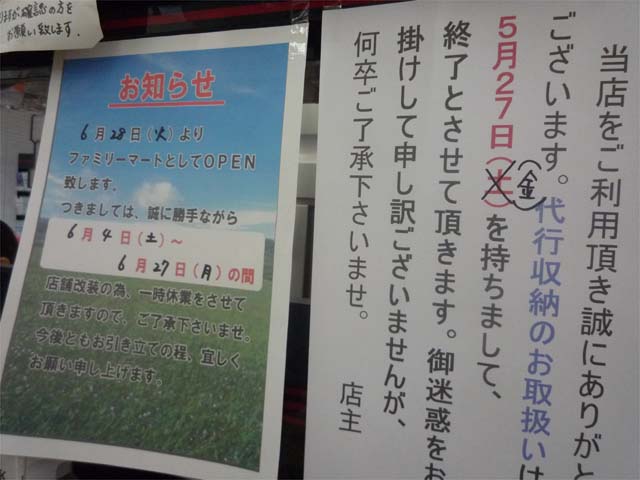 りますが確認の方を
お願い致します。
お知らせ
6月28日(火)より
ファミリーマートとしてOPEN
致します。
つきましては、誠に勝手ながら
6月4日(土)～
6月27日(月)の間
店舗改装の為、一時休業をさせて
頂きますので、ご了承下さいませ。
今後ともお引き立ての程、宜しく
お願い申し上げます。
当店をご利用頂き誠にありがと
ございます。代行収納のお取扱いは
5月27日(土)(金)を持ちまして、
終了とさせて頂きます。御迷惑をお
掛けして申し訳ございませんが、
何卒ご了承下さいませ。
店主